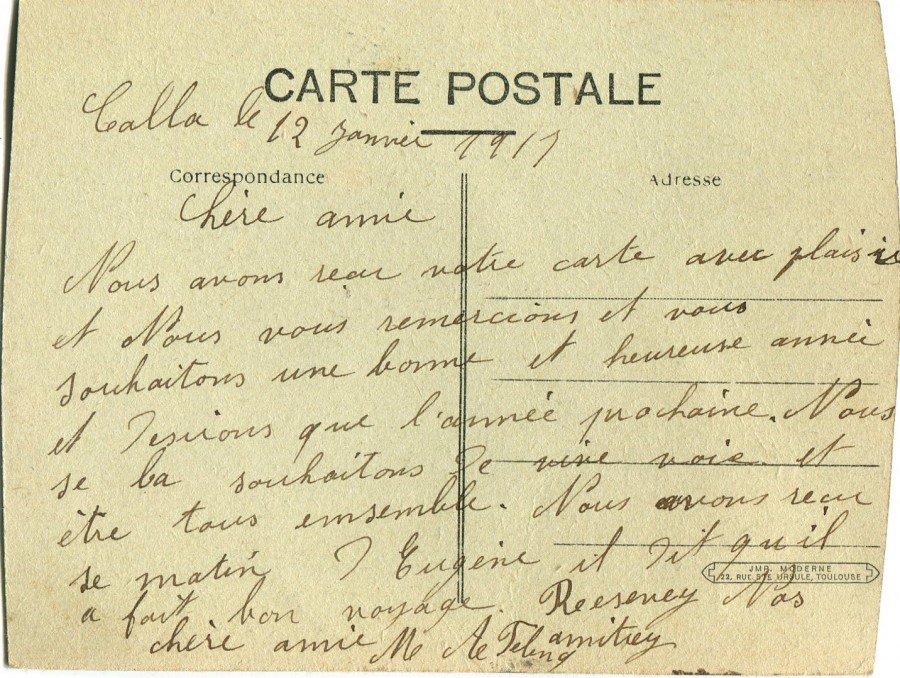 CARTE POSTALE
Calla le 12 Janvier 1917
Correspondance
Adresse
Chère amie
Nous avons reçu votre carte avec plaisir
et Nous vous remercions et vous
souhaitons une bonne et heureuse année
et Desirons que l'année prochaine. Nous
se la souhaitons De vive voie et
être tous emsemble. Nous avons recu
se matin D Eugène il Dit qu'il
a fait bon voyage. Resevey Nos
chère amie M amitiey
JMR. MODERNE
22, RUE STE URSULE, TOULOUSE